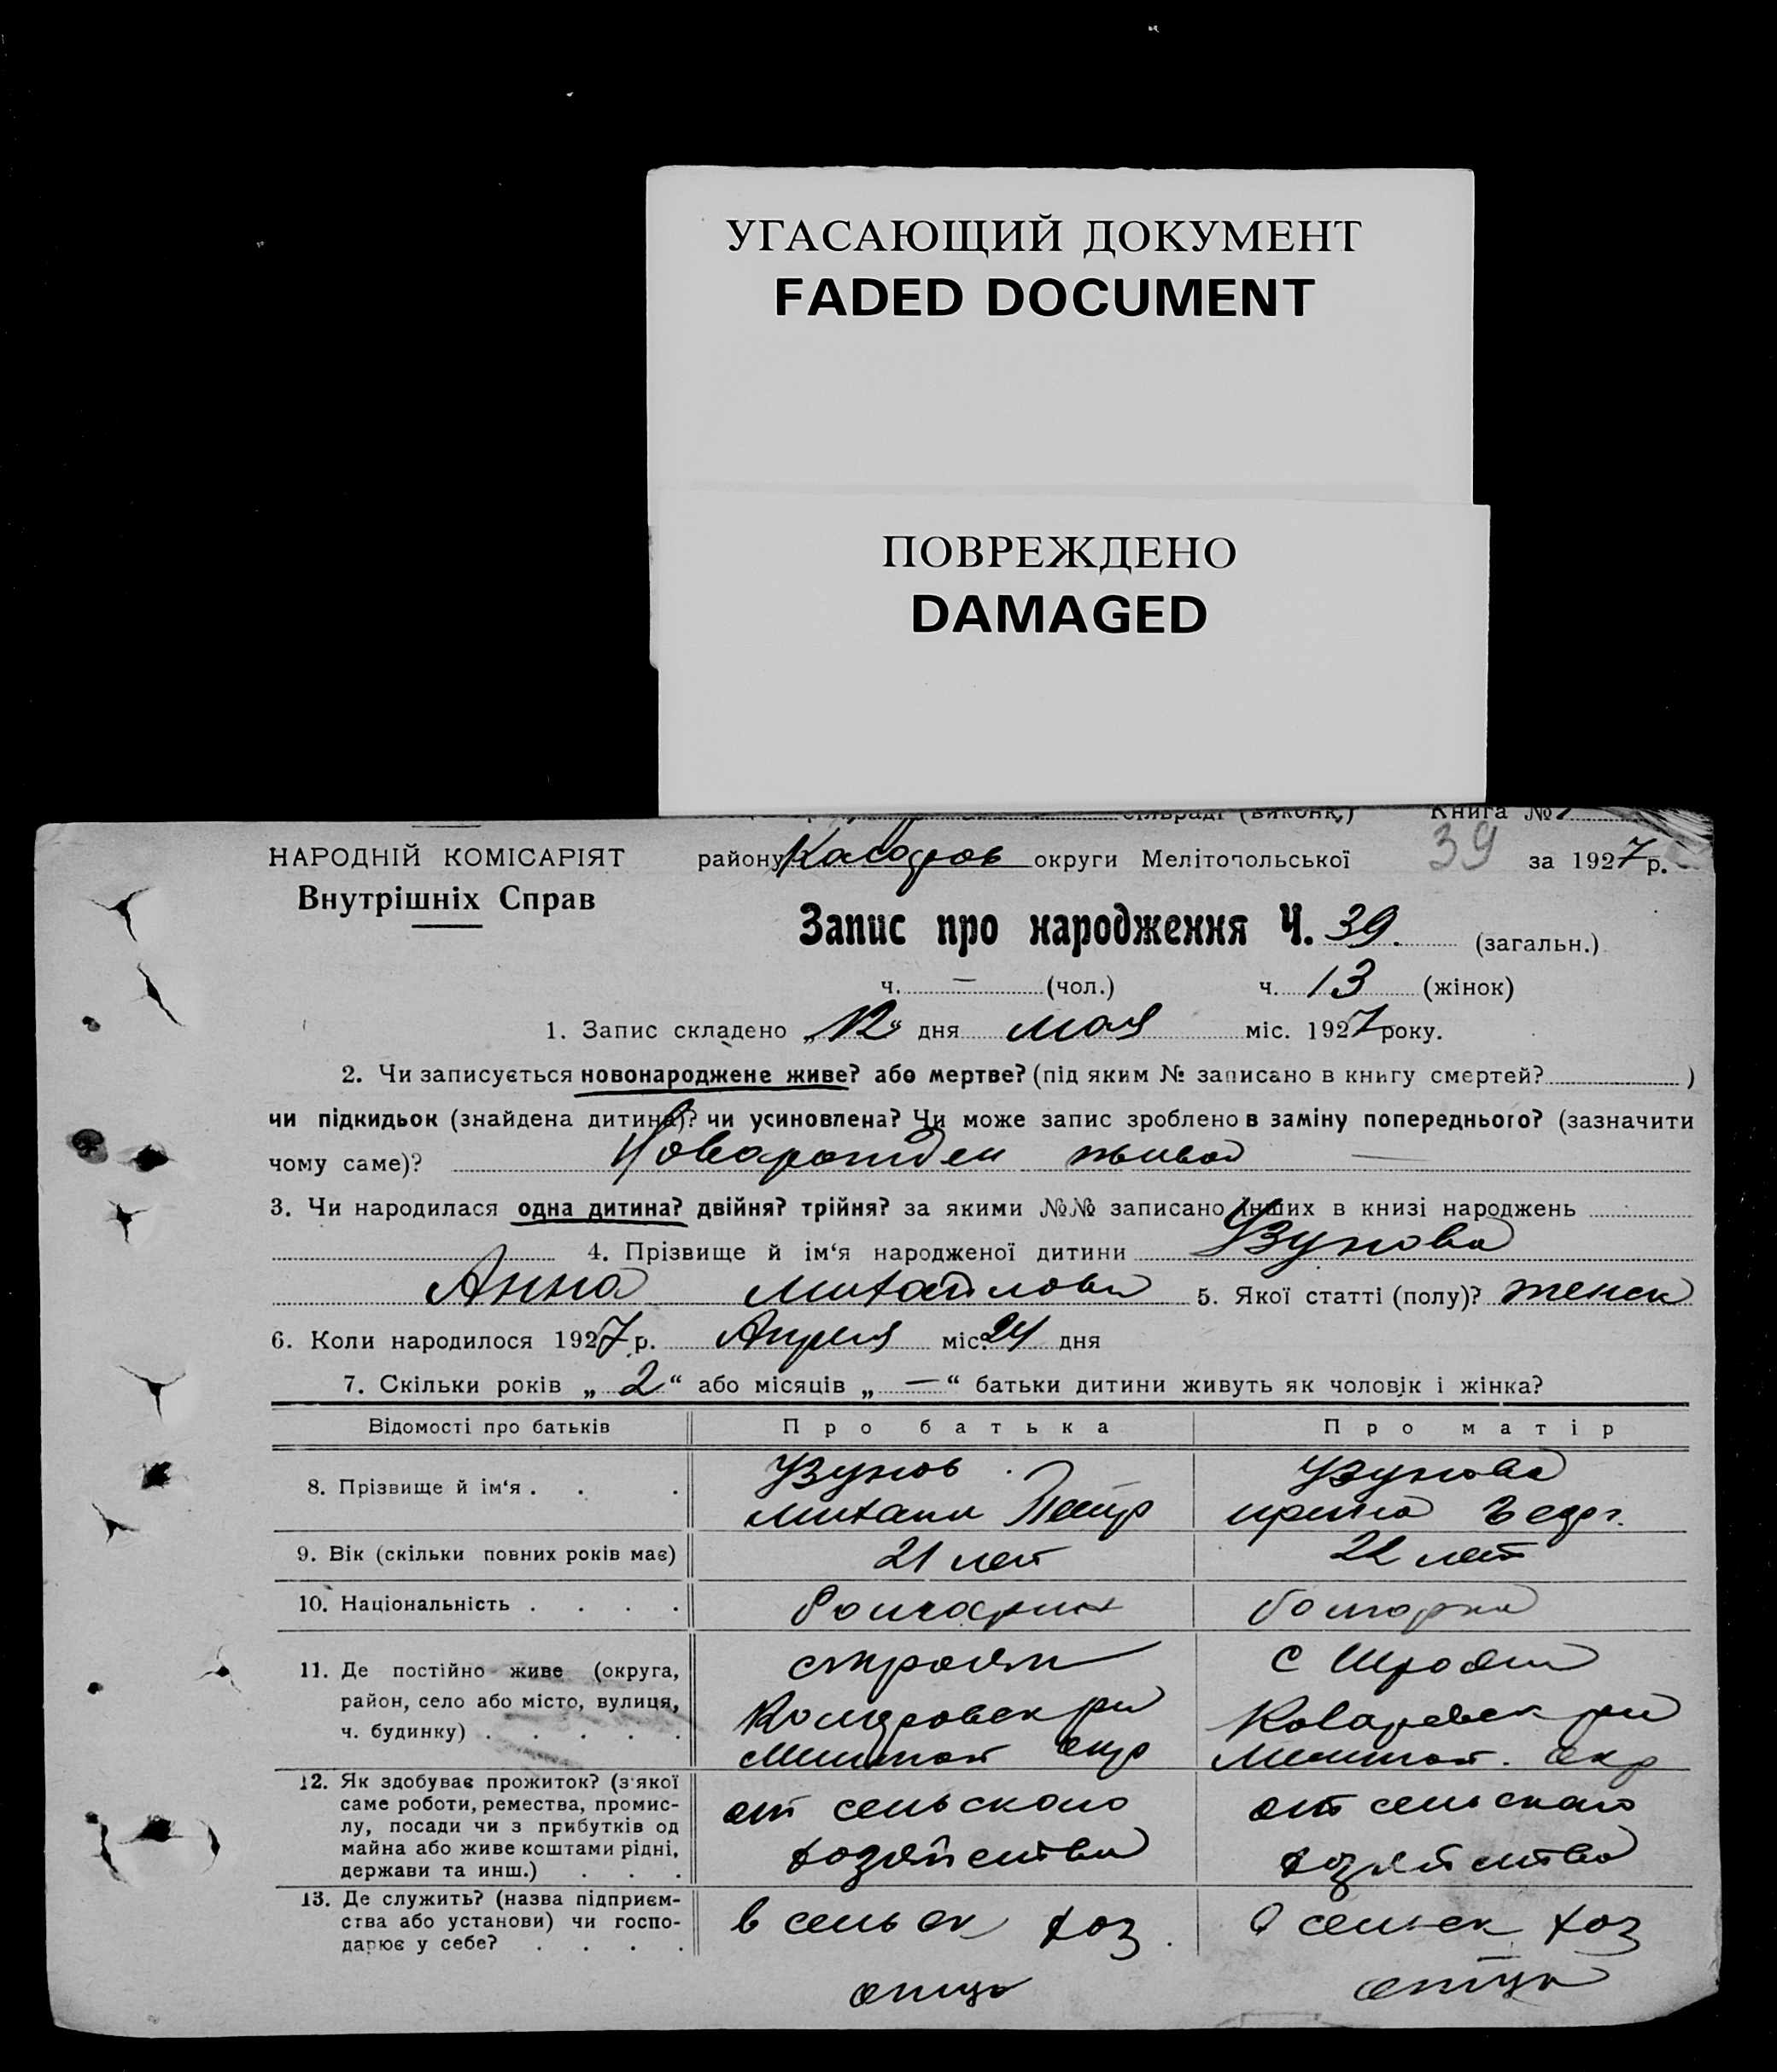 УГАСАЮЩИЙ ДОКУМЕНТ
FADED DOCUMENT
ПОВРЕЖДЕНО
DAMAGED
сільраді (виконк.) Книга №
НАРОДНІЙ КОМІСАРІЯТ
Внутрішніх Справ
району округи Мелітопольської 39 за 1927 р.
Запис про народження Ч. 39. (загальн.)
ч. — (чол.) ч. 13 (жінок)
1. Запис складено „12“ дня мая міс. 1927 року.
2. Чи записується новонароджене живе? або мертве? (під яким № записано в книгу смертей? )
чи підкидьок (знайдена дитина)? чи усиновлена? Чи може запис зроблено в заміну попереднього? (зазначити
чому саме)? живой —
3. Чи народилася одна дитина? двійня? трійня? за якими №№ записано інших в книзі народжень
4. Прізвище й ім‘я народженої дитини Узунова
Анна Михайлова 5. Якої статті (полу)? женск
6. Коли народилося 1927 р. Апреля міс. 24 дня
7. Скільки років „ 2 “ або місяців „ — “ батьки дитини живуть як чоловік і жінка?
Відомості про батьків Про батька Про матір
8. Прізвище й ім‘я . . . Узунов Узунова
Михаил Петр
9. Вік (скільки повних років має) 21 лет 22 лет
10. Національність . . . . болгарин болгарка
11. Де постійно живе (округа,
район, село або місто, вулиця,
ч. будинку) . . . . .
Мелитоп окр Мелитоп. окр
12. Як здобуває прожиток? (з якої
саме роботи, ремества, промис-
лу, посади чи з прибутків од
майна або живе коштами рідні,
держави та инш.) . . .
от сельского от сельского
хозяйства хозяйства
13. Де служить? (назва підприєм-
ства або установи) чи госпо-
дарює у себе? . . . .
в сельск хоз в сельск хоз
отца отца